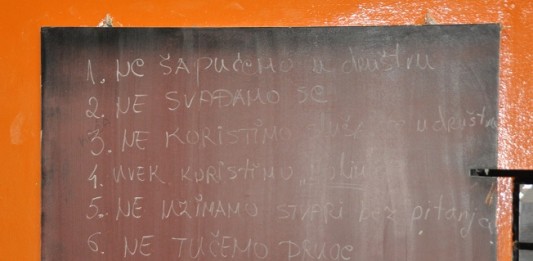 1. NE ŠAPUĆEMO u društvu
2. NE SVAĐAMO SE
3. NE KORISTIMO u društvu
4. UVEK KORISTIMO
5. NE UZIMAMO STVARI bez pitanja
6. NE TUČEMO DRUGE